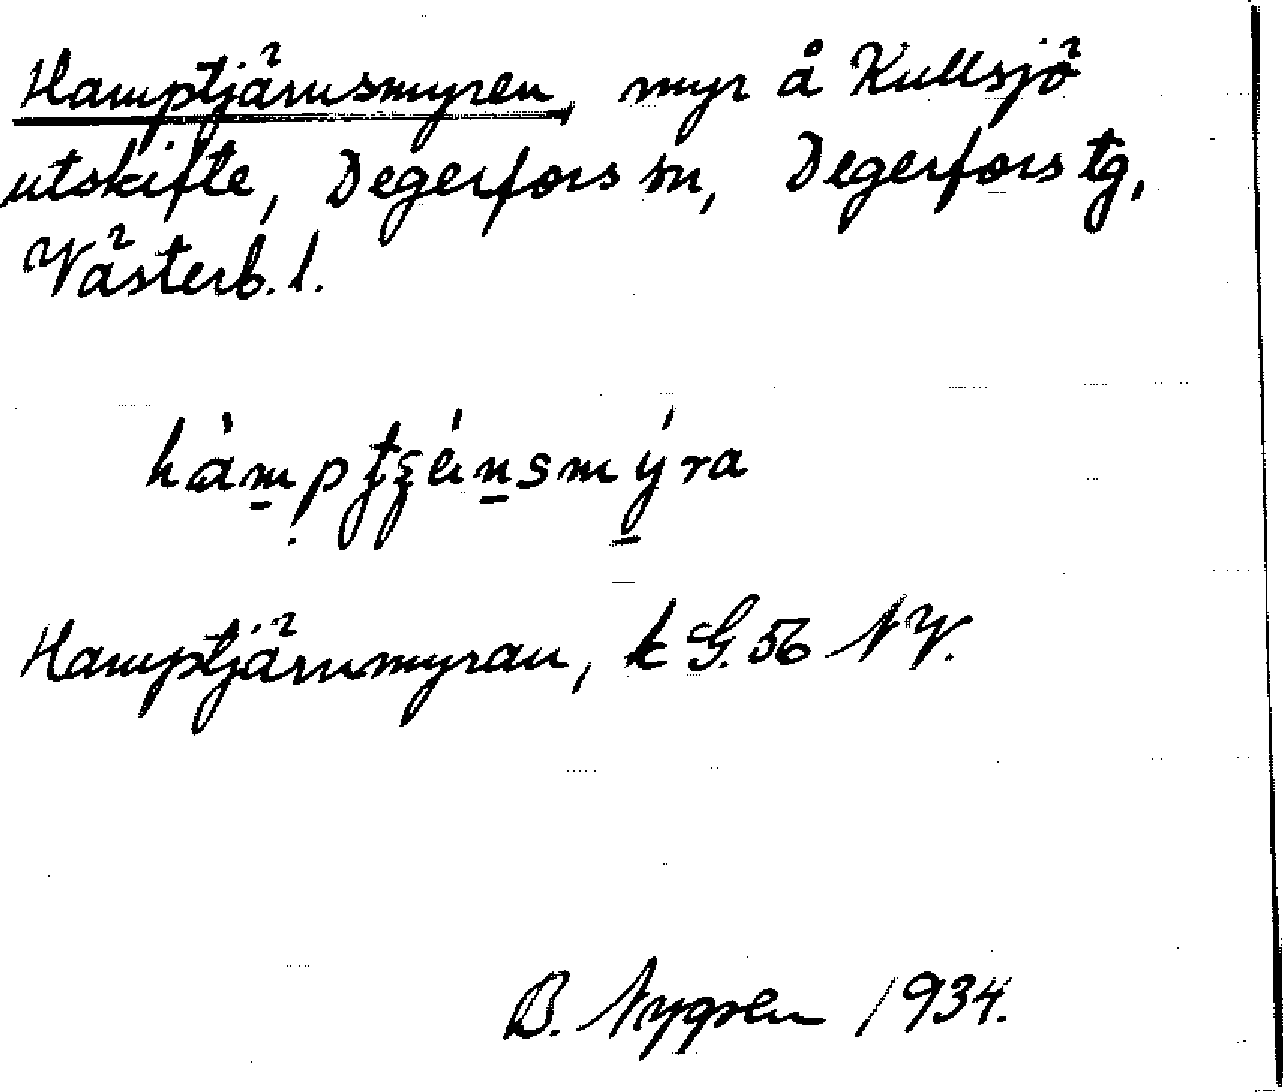 Hamptjärnsmyren, myr å Kullsjö
utskifte, Degerfors sn, Degerfors tg,
Västerb. l.
Hamptjärnmyran, k G. 56 NV.
B. Nygren 1934.